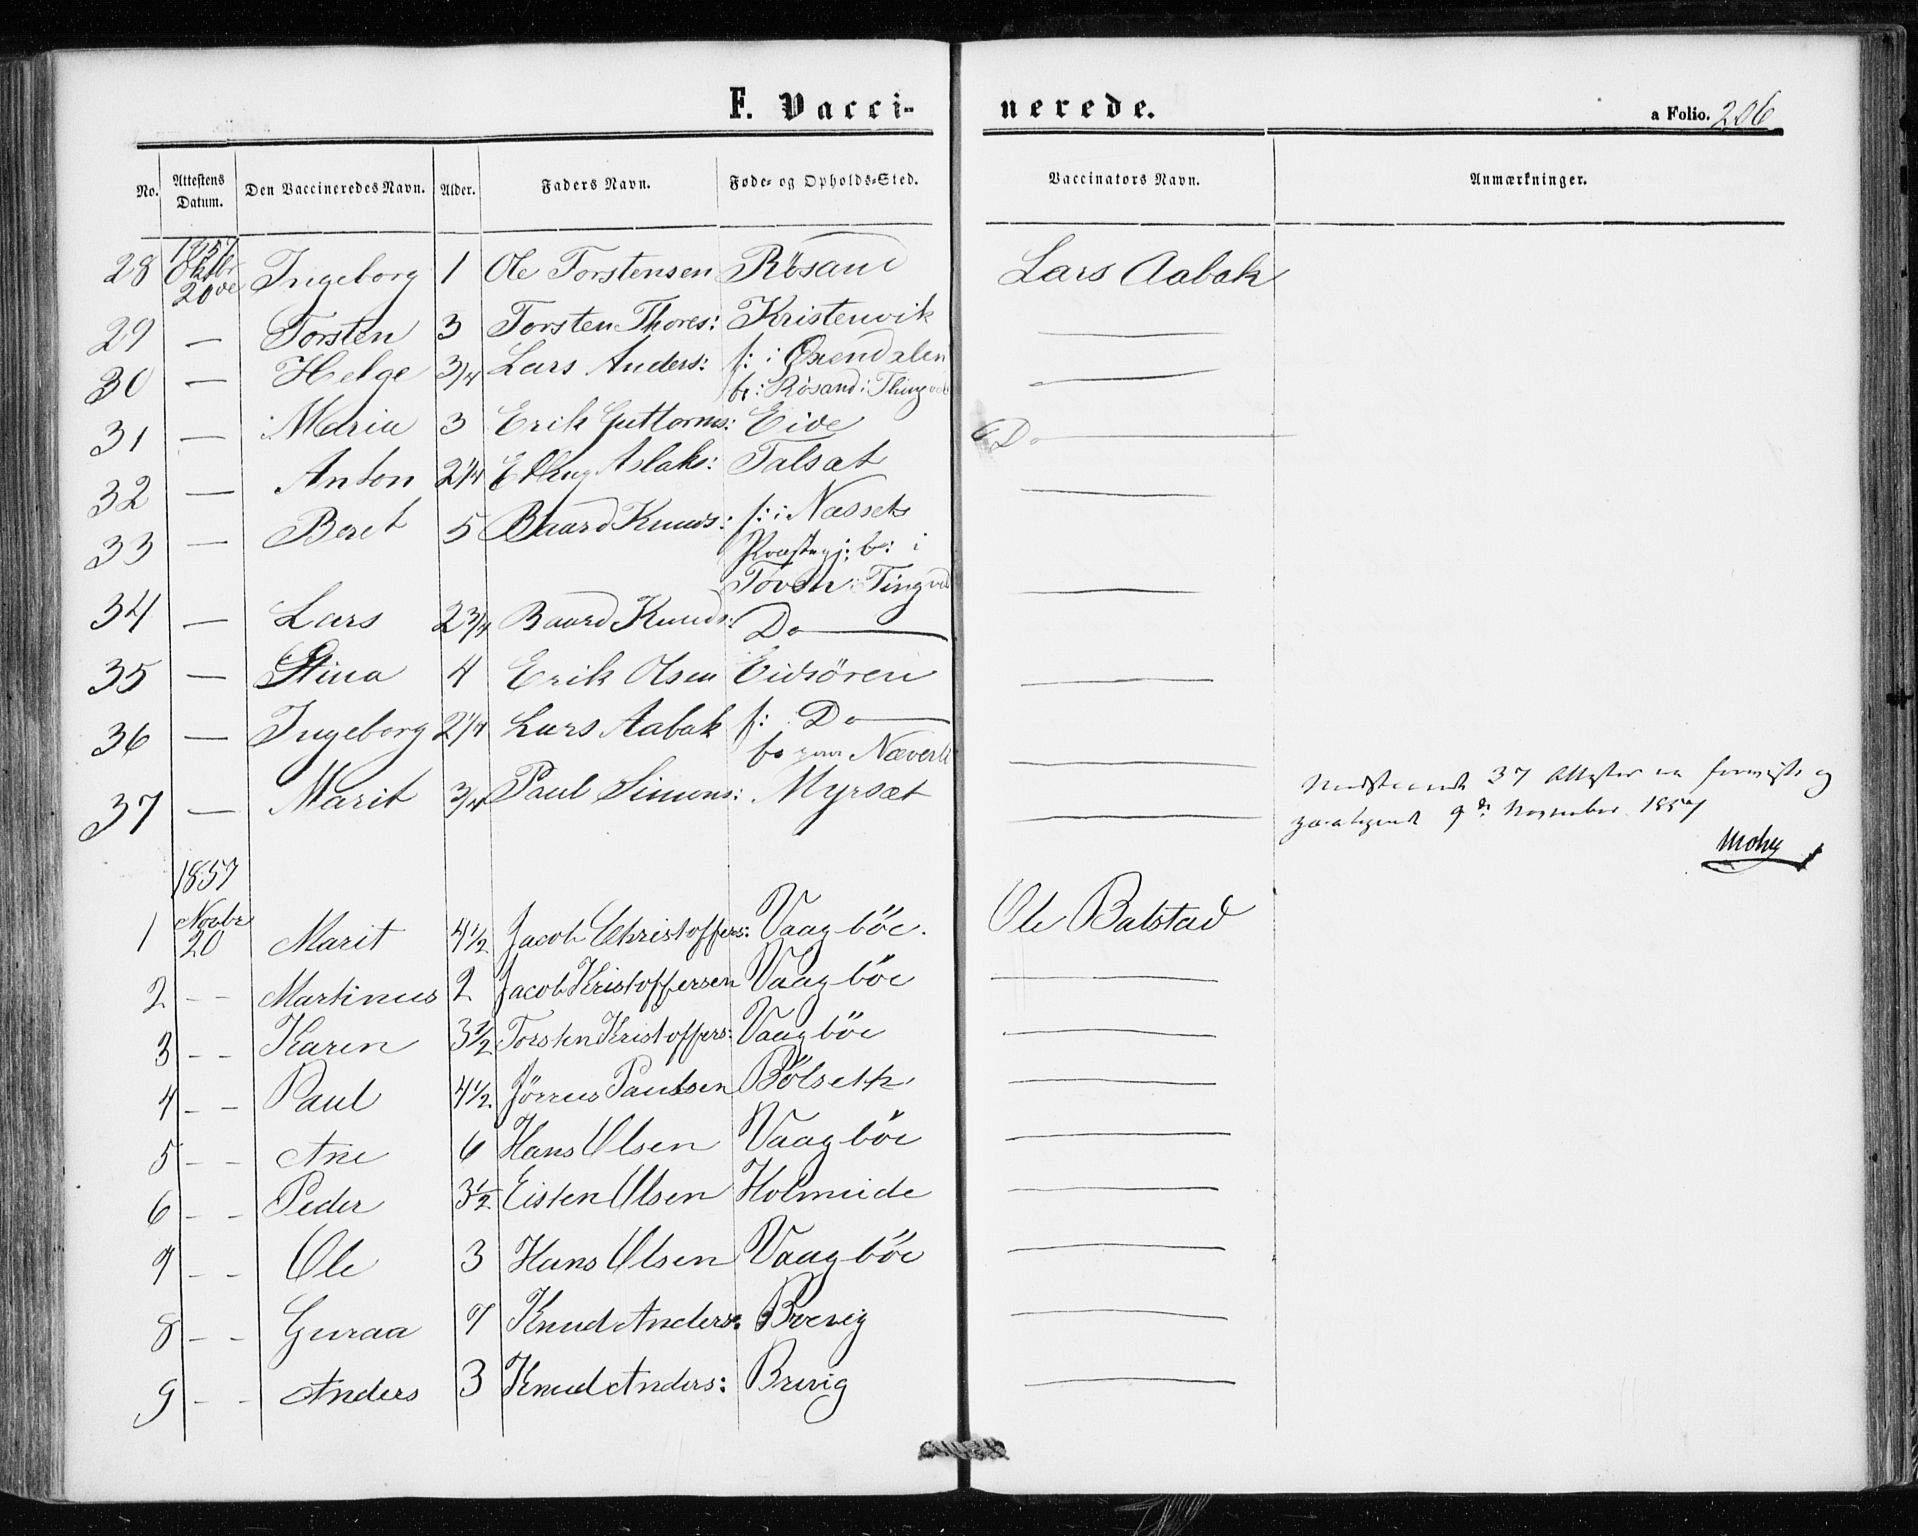 F. Vacci-nerede. a Folio. 206
No. Attestens Datum. Den Vaccineredes Navn. Alder. Faders Navn. Føde- og Opholds-Sted. Vaccinators Navn. Anmærkninger.
1857
28 Oktbr 20de Ingeborg 1 Ole Torstensen Røsand Lars Aabak
29 — Torsten 3 Torsten Thores: Kristenvik —
30 — Helge 3/4 Lars Anders: f: i Øxendalen —
b: Røsand i Thingvol
31 — Maria 3 Erik Guttorms: Eide Do —
32 — Anton 2 1/4 Elling Aslaks: Talsæt —
33 — Beret 5 Baard Knuds: f: i Næssets
Præstegj: b: i
Tøven: Tingvol —
34 — Lars 2 3/4 Baard Knuds: Do —
35 — Stina 4 Erik Olsen Eidsören —
36 — Ingeborg 2 1/4 Lars Aabak f: Do —
bo paa Næverli —
37 — Marit 3/4 Paul Simons: Myrsæt —
37 Attester og
9de November 1857
1857
1 Novbr 20 Marit 4 1/2 Jacob Christoffers: Vaagböe. Ole Balstad
2 - - Martinus 2 Jacob Kristoffersen Vaagböe —
3 - - Karen 3 1/2 Torsten Kristoffers: Vaagböe —
4 - - Paul 4 1/2 Jörnes Paulsen Bölseth —
5 - - Ane 6 Hans Olsen Vaagböe —
6 - - Peder 3 1/2 Eisten Olsen Holmeide —
7 - - Ole 3 Hans Olsen Vaagböe —
8 - - Guraa 7 Knud Anders: Brevig —
9 - - Anders 3 Knud Anders: Brevig —